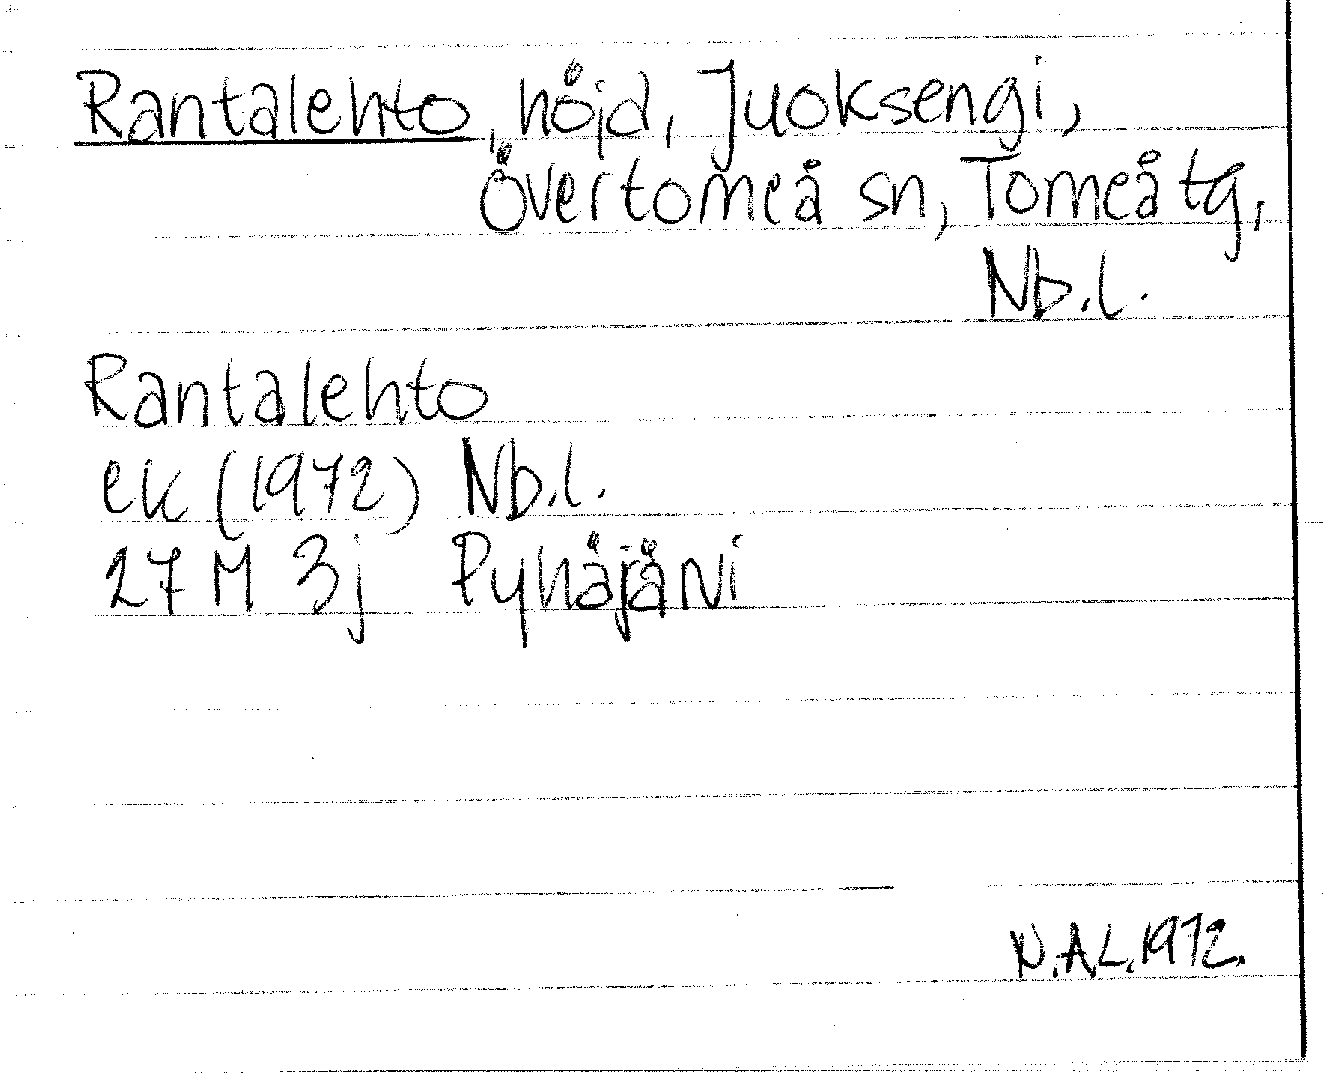 Rantalehto, höjd, Juoksengi,
Övertorneå sn, Torneå tg,
Nb.l.
Rantalehto
ek (1972) Nb.l.
27 M 3j Pyhäjärvi
N.A.L. 1972.